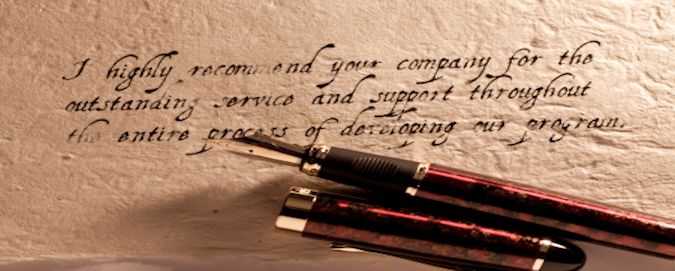 I highly recommend your company for the
outstanding service and support throughout
the entire process of developing our program.